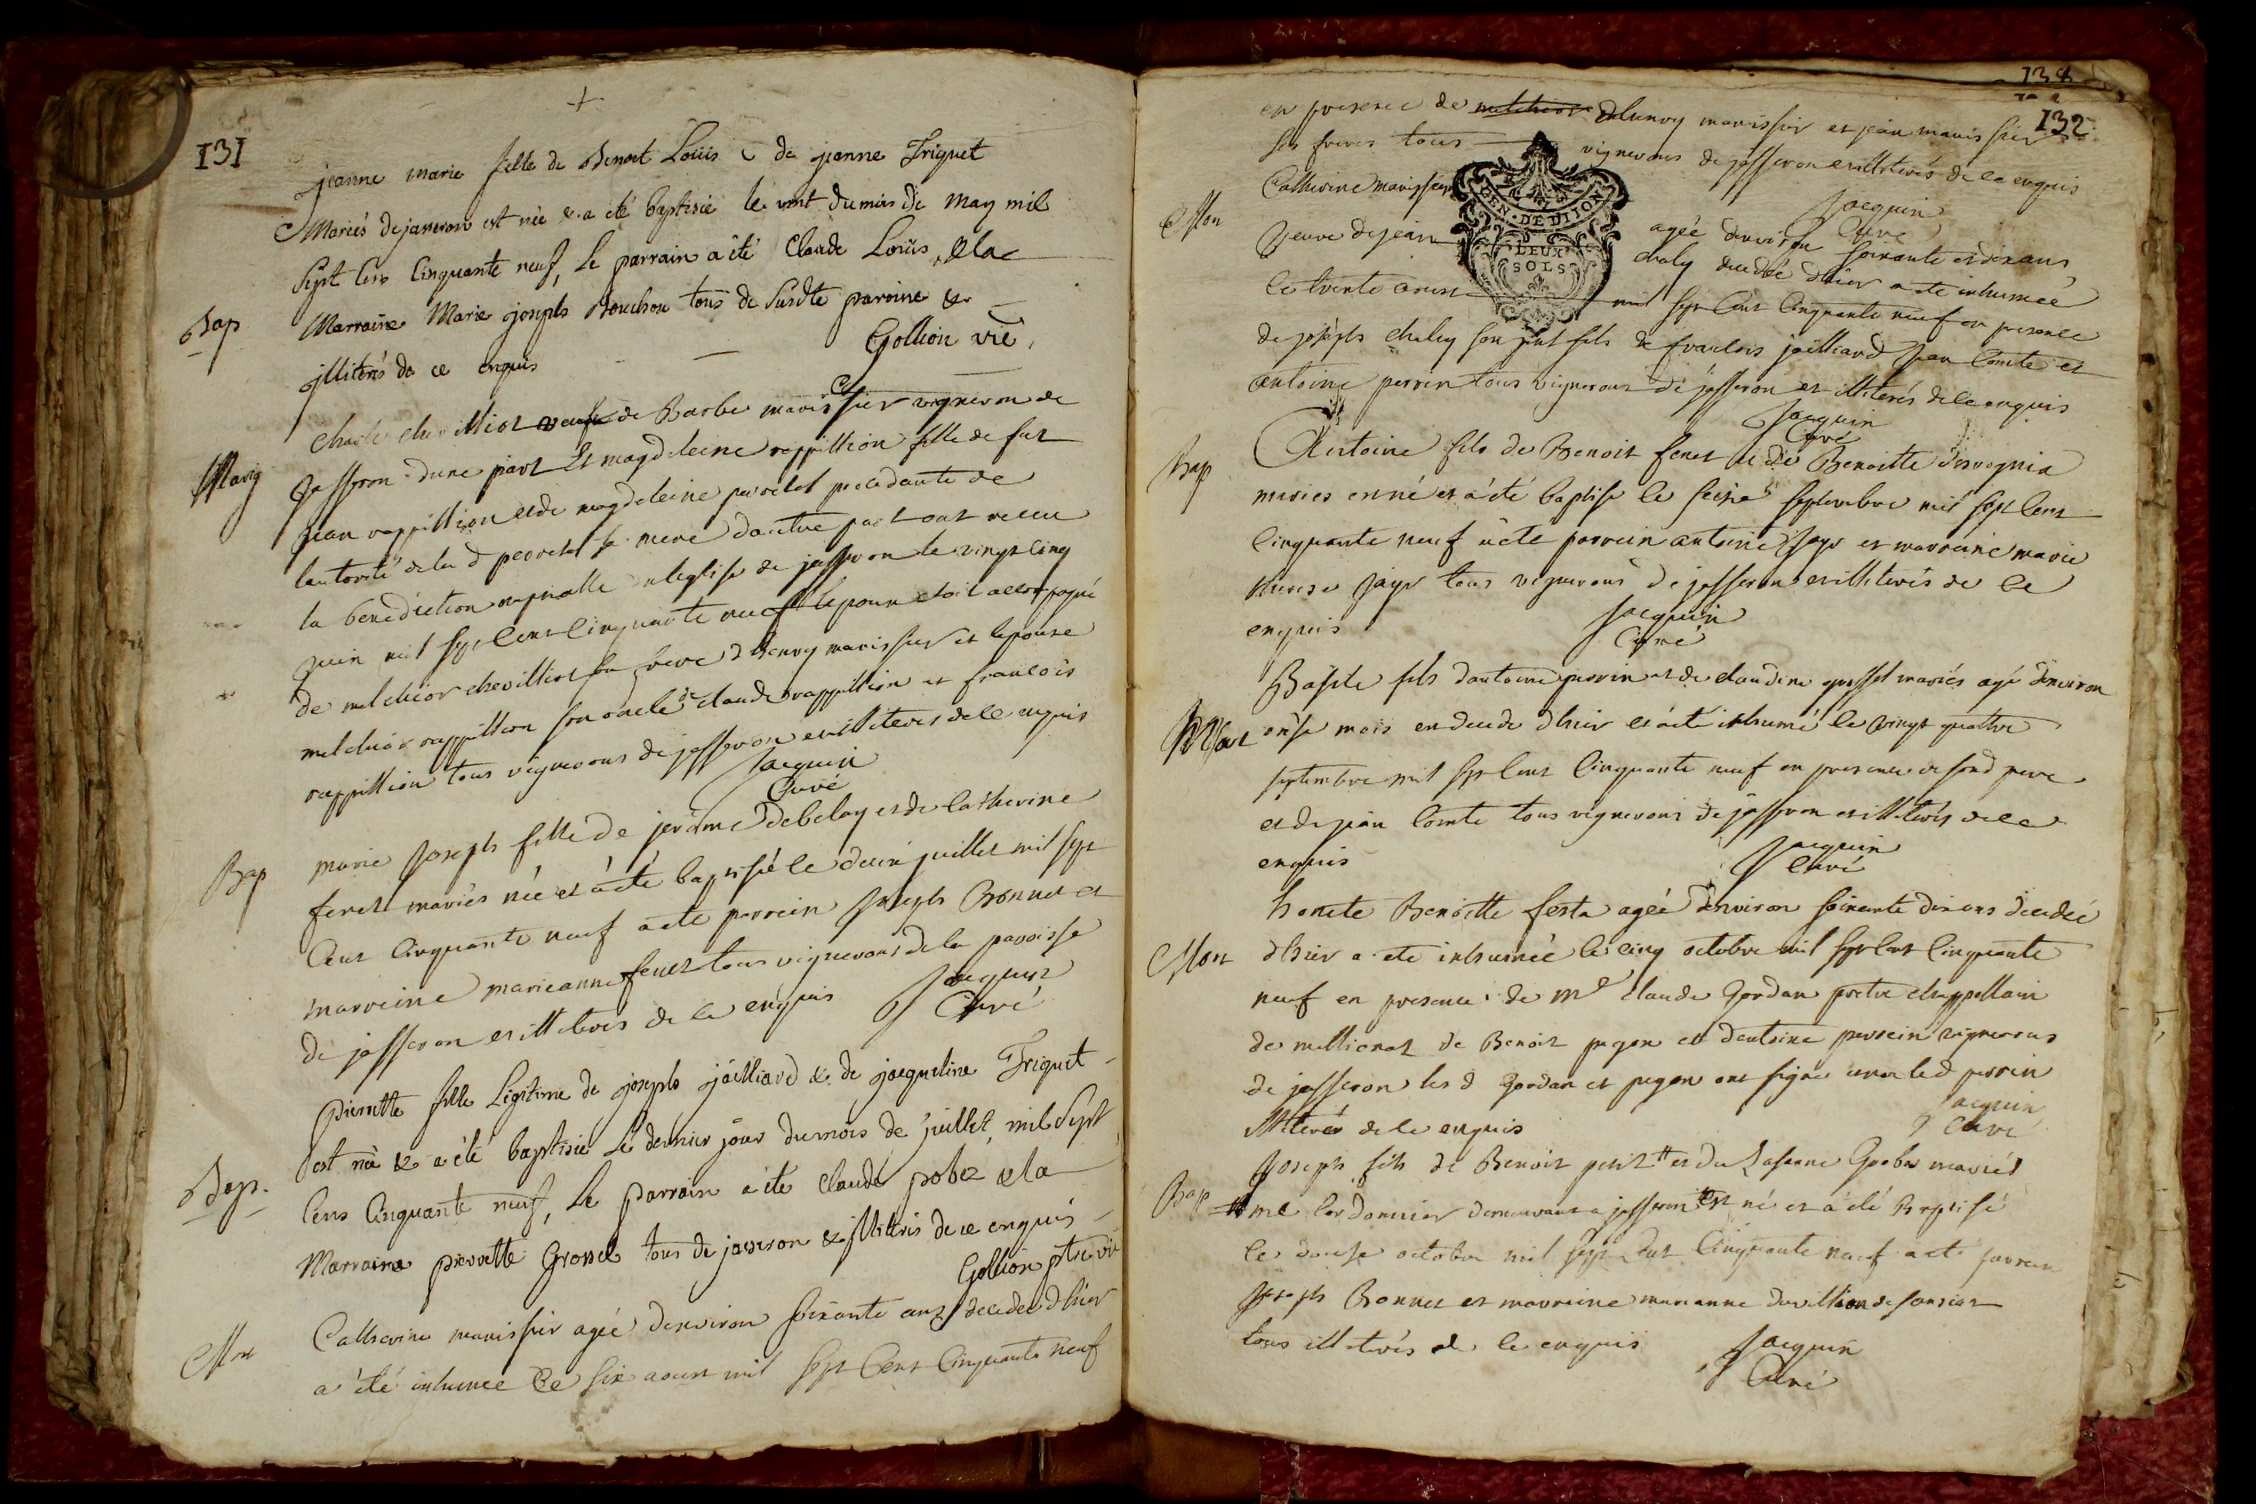 131
jeanne marie fille de Benoit Loüis & de jeanne Triquet
Mariés de jasseron est née & a été baptisée le vint du mois de may mil
Sept Cens Cinquante neuf, Le parrain a été Claude Loüis, & la
Bap
Marraine Marie joseph Bouchou tous de Susdte paroisse &
illiterés de ce enquis
Gollion vic
Marig
Charle chevilliot veuf de Barbe marissier vigneron de
Jasseron dune part Et magdeleine rappillion fille de fut
jean rappillion et de magdeleine perrelet procedante de
lautorité de lad perrelet sa mere dautre part ont receu
la benediction nuptialle en leglise de jasseron le vingt cinq
juin mil sept cent cinquante neuf lepoux etoit accompagné
de melchior chevilliot son frere d henry marissier et lepouse
melchior rappillion son oncle de claude rappillion et francois
rappillion tous vignerons de jasseron et illiterés de ce enquis
Jacquin
Curé
Bap
marie joseph fille de jerôme debelay et de catherine
feret mariés née et a été baptisée le deux juillet mil sept
Cent Cinquante neuf a été parrein joseph Bonnet et
marreine marieanne feret tous vignerons de la paroisse
de jasseron et illiterés de ce enquis
Jacquin
Curé
pierrette fille Légitime de joseph jailliard & de jacqueline Triquet
est née & a été baptisée Le dernier jour du mois de juillet, mil Sept
Bap.
Cens Cinquante neuf, Le parrain a été claude pobez & la
Marraine pierrette Grosset tous de jasseron & illiterés de ce enquis
Gollion ptre vic
Mor
Catherine marissier agée denviron soixante ans decedée d hier
a été inhumée Le six aoust mil sept Cent Cinquante neuf
138
132
en presence de d henry marissier et jean marissier
ses freres tous vignerons de jasseron et illiterés de ce enquis
Jacquin
Curé
Mor
Catherine marissier agée denviron soixante et dix ans
Veuve de jean chaley decedée d hier a été inhumée
le trente aoust mil sept Cent Cinquante neuf en presence
GEN. DE DIJON
DEUX
SOLS
de joseph chaley son petit fils de francois jailliard jean Comte et
antoine perrin tous vignerons de jasseron et illiterés de ce enquis
Jacquin
Curé
Bap
Antoine fils de Benoit feret et de Benoitte
mariés est né et a été baptisé le seise septembre mil sept Cent
Cinquante neuf a été parrein antoine jayr et marreine marie
jayr tous vignerons de jasseron et illiterés de ce
enquis
Jacquin
Curé
Baptiste fils dantoine perrin et de claudine grosset mariés agé denviron
Mor
onse mois est decedé d hier et a été inhumé le vingt quattre
septembre mil sept Cent Cinquante neuf en presence de sond pere
et de jean Comte tous vignerons de jasseron et illiterés de ce
enquis
Jacquin
Curé
honete Benoitte festa agée denviron soixante dix ans decedée
Mor
d hier a été inhumée le cinq octobre mil sept Cent Cinquante
neuf en presence de Me claude Gordan pretre chappellain
de de Benoit pugeon et dantoine perrein vignerons
de jasseron les d Gordan et pugeon ont signé non led perrin
illiteré de ce enquis
Jacquin
Curé
Joseph fils de Benoit petit et de Suzanne mariés
Bap
me Cordonnier demeurant a jasseron est né et a été baptisé
le douse octobre mil sept Cent Cinquante neuf a été parrein
joseph Bonnet et marreine marianne
tous illiterés de ce enquis
Jacquin
Curé